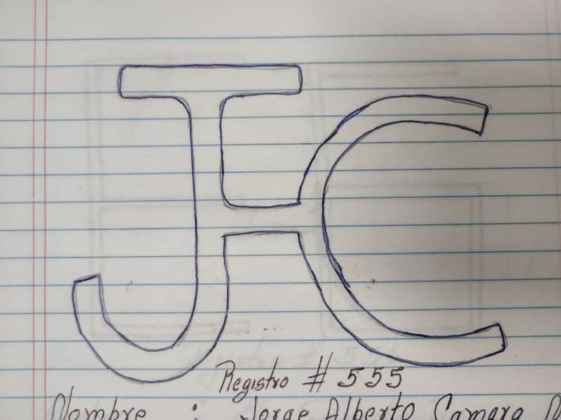 JC
Registro # 555
Nombre : Jorge Alberto Camero